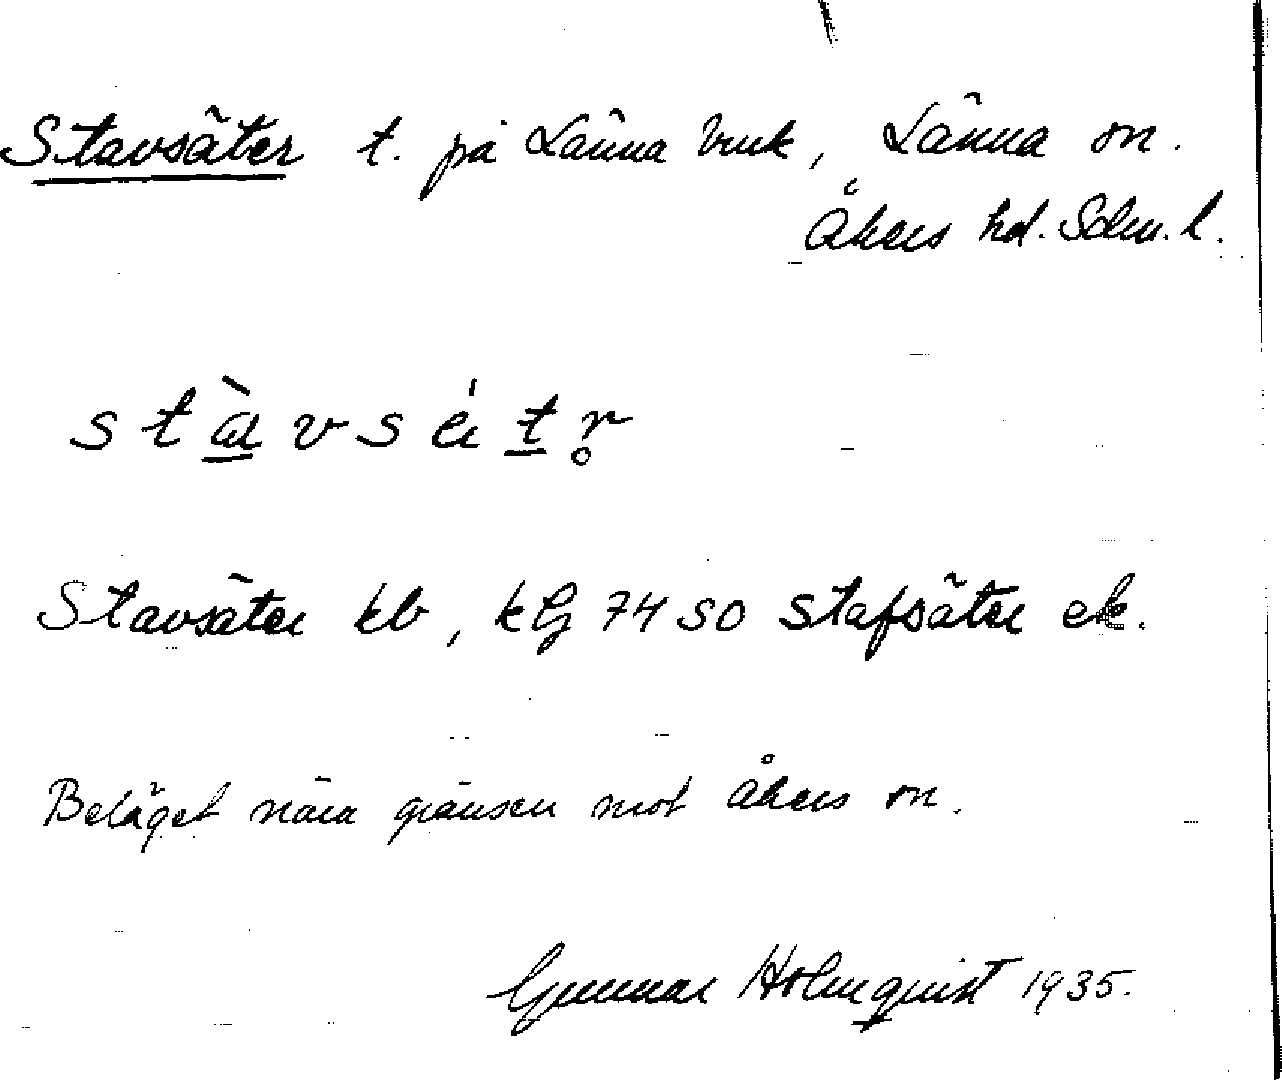 Stavsäter t. på Länna bruk, Länna sn.
Åkers hd. Sdm. l.
stàvsätr
Stavsäter kb, kG 74 SO Stafsäter ek.
Beläget nära gränsen mot Åkers sn.
Gunnar Holmquist 1935.